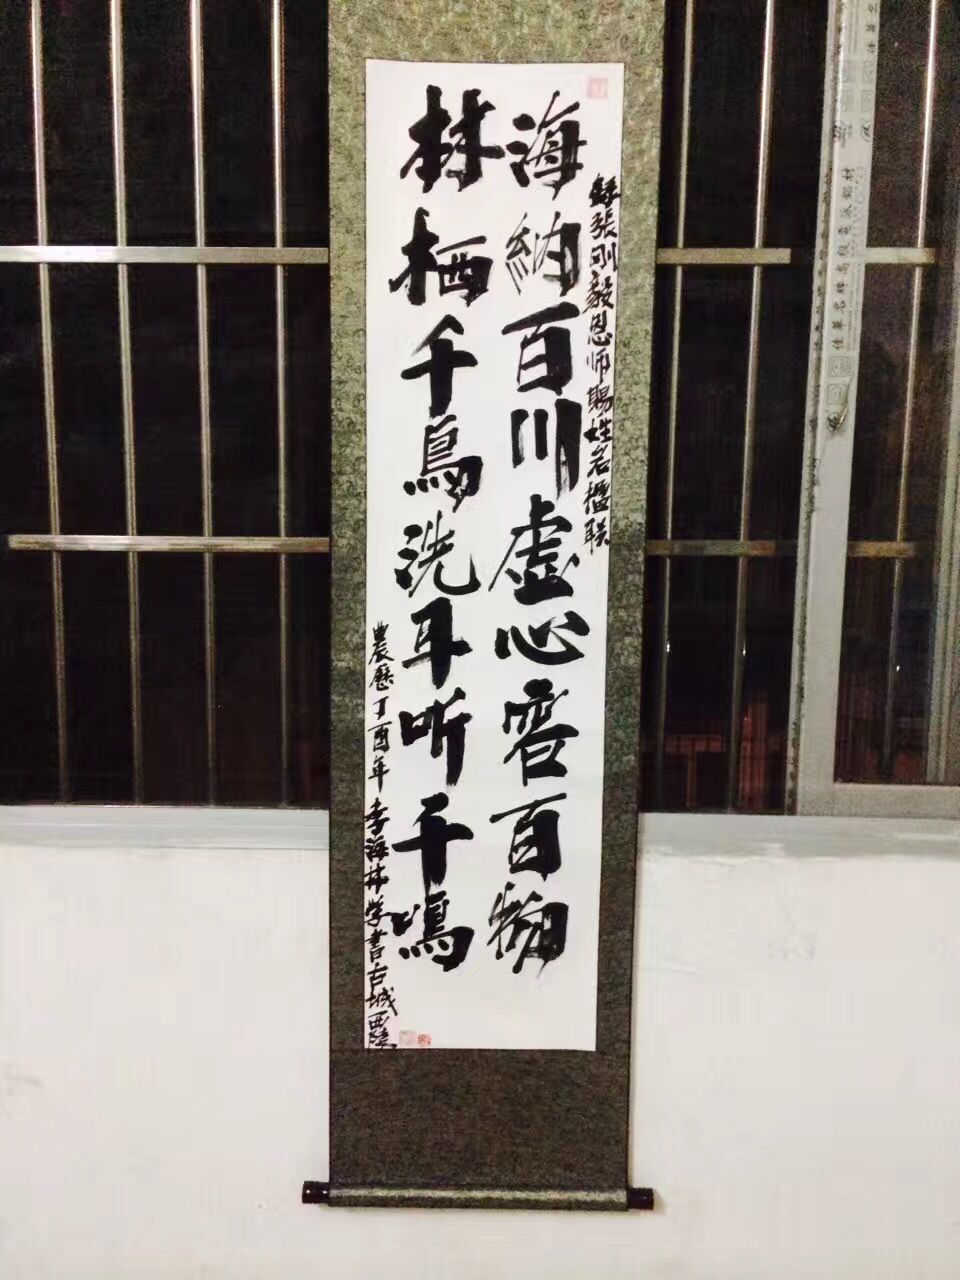 録張剛毅恩师賜姓名楹联
海納百川虚心容百物
林栖千鳥洗耳听千鳴
農歷丁酉年李海林学書古城西陵